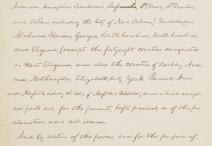 Ascension, Assumption, Terrebonne, Lafourche, St Mary, St Martin,
and Orleans, including the City of New Orleans) Mississippi
Alabama, Florida, Georgia, South Carolina, North Carolina,
and Virginia (except the fortyeight counties designated
as West Virginia, and also the counties of Berkley, Acco-
mac, Northampton, Elizabeth-City, York, Princess Ann,
and Norfolk, including the cities of Norfolk &
parts are, for the present, left precisely as if this proc-
lamation were not issued.
And by virtue of the power, and for the purpose af-